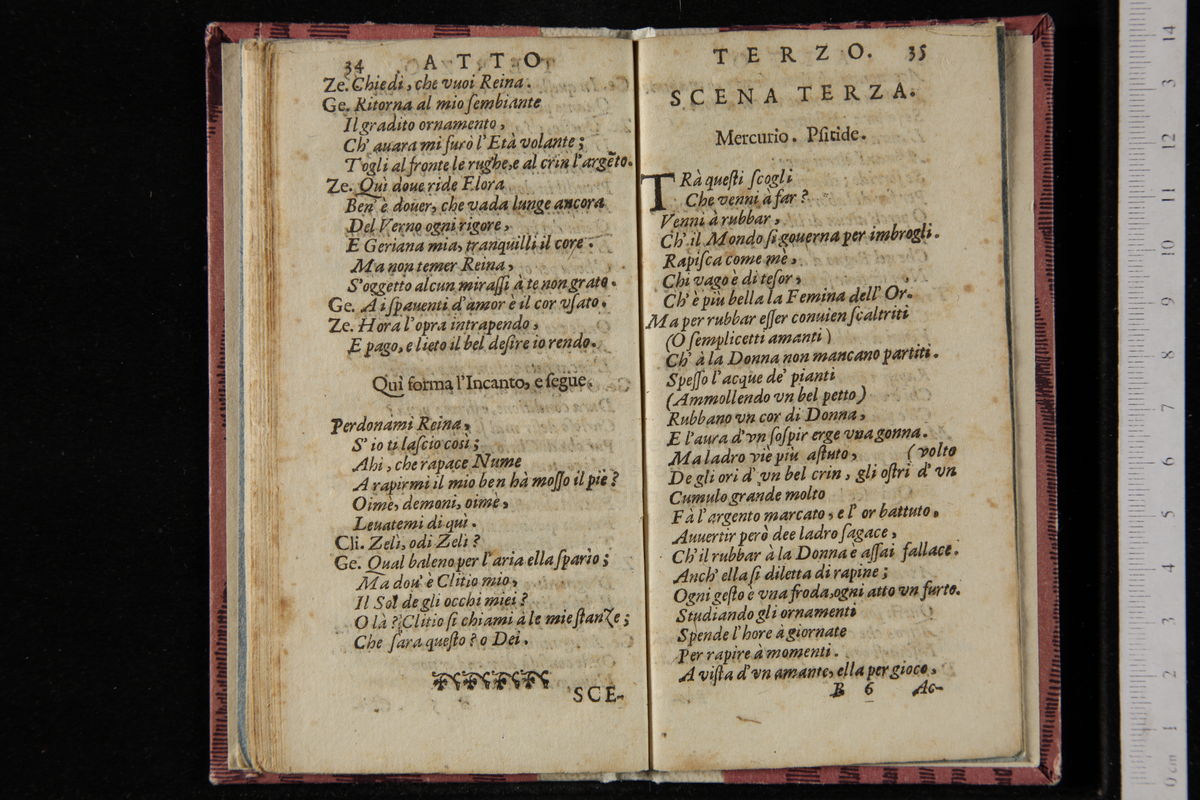 34 ATTO
Ze. Chiedi, che vuoi Reina.
Ge. Ritorna al mio ſembiante
Il gradito ornamento,
Ch' auara mi furò l'Età volante;
Togli al fronte le rughe, e al crin l'argẽto.
Ze. Quì doue ride Flora
Ben' è douer, che vada lunge ancora
Del Verno ogni rigore,
E Geriana mia, tranquilli il core.
Ma non temer Reina,
S'oggetto alcun miraſſi à te non grato.
Ge. A i ſpauenti d'amor è il cor vſato.
Ze. Hora l'opra intrapendo,
E pago, e lieto il bel deſire io rendo.
Quì forma l'Incanto, e ſegue.
Perdonami Reina,
S' io ti laſcio così;
Ahi, che rapace Nume
A rapirmi il mio ben hà moſſo il piè?
Oimè, demoni, oimè,
Leuatemi di qui.
Cli. Zelì, odi Zelì?
Ge. Qual baleno per l'aria ella ſparìo;
Ma dou' è Clitio mio,
Il Sol de gli occhi miei?
O là? Clitio ſi chiami à le mie ſtanze;
Che ſarà queſto? o Dei.
SCE-
TERZO. 35
SCENA TERZA.
Mercurio. Pſitide.
TRà queſti ſcogli
Che venni à far?
Venni à rubbar,
Ch' il Mondo ſi gouerna per imbrogli.
Rapiſca come me,
Chi vago è di teſor,
Ch' è più bella la Femina dell' Or.
Ma per rubbar eſſer conuien ſcaltriti
(O ſemplicetti amanti)
Ch' à la Donna non mancano partiti.
Speſſo l'acque de' pianti
(Ammollendo vn bel petto)
Rubbano vn cor di Donna,
E l'aura d'vn ſoſpir erge vna gonna.
Ma ladro viè più aſtuto, (volto
De gli ori d' vn bel crin, gli oſtri d' vn
Cumulo grande molto
Fà l'argento marcato, e l' or battuto.
Auuertir però dee ladro ſagace,
Ch' il rubbar à la Donna è aſſai fallace.
Anch' ella ſi diletta di rapine;
Ogni geſto è vna froda, ogni atto vn furto.
Studiando gli ornamenti
Spende l'hore à giornate
Per rapire à momenti.
A viſta d'vn amante, ella per gioco,
B 6 Ac-
0 cm 1 2 3 4 5 6 7 8 9 10 11 12 13 14